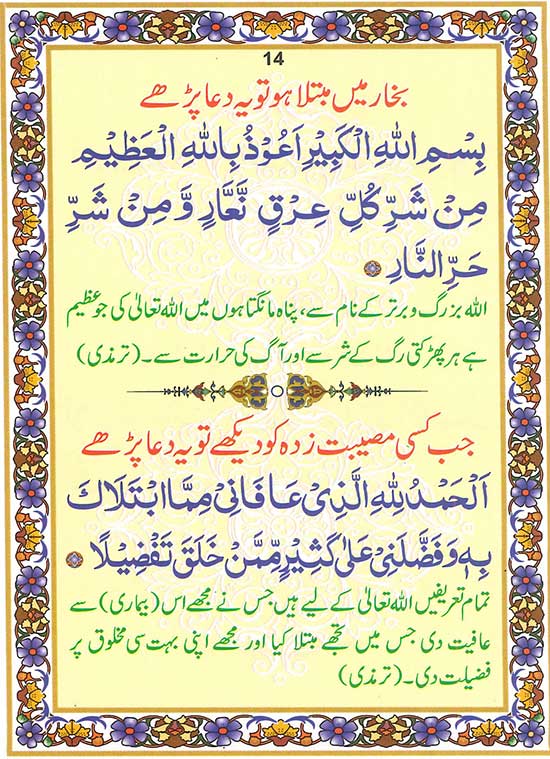 14
بخار میں مبتلا ہو تو یہ دعا پڑھے
بِسْمِ اللّٰهِ الْكَبِيْرِ اَعُوْذُ بِاللّٰهِ الْعَظِيْمِ
مِنْ شَرِّ كُلِّ عِرْقٍ نَّعَّارٍ وَّ مِنْ شَرِّ
حَرِّ النَّارِ
اللہ بزرگ و برتر کے نام سے، پناہ مانگتا ہوں میں اللہ تعالیٰ کی جو عظیم
ہے ہر پھڑکتی رگ کے شر سے اور آگ کی حرارت سے۔ (ترمذی)
جب کسی مصیبت زدہ کو دیکھے تو یہ دعا پڑھے
اَلْحَمْدُ لِلّٰهِ الَّذِيْ عَافَانِيْ مِمَّا ابْتَلَاكَ
بِهٖ وَفَضَّلَنِيْ عَلٰى كَثِيْرٍ مِّمَّنْ خَلَقَ تَفْضِيْلًا
تمام تعریفیں اللہ تعالیٰ کے لیے ہیں جس نے مجھے اس (بیماری) سے
عافیت دی جس میں تجھے مبتلا کیا اور مجھے اپنی بہت سی مخلوق پر
فضیلت دی۔ (ترمذی)